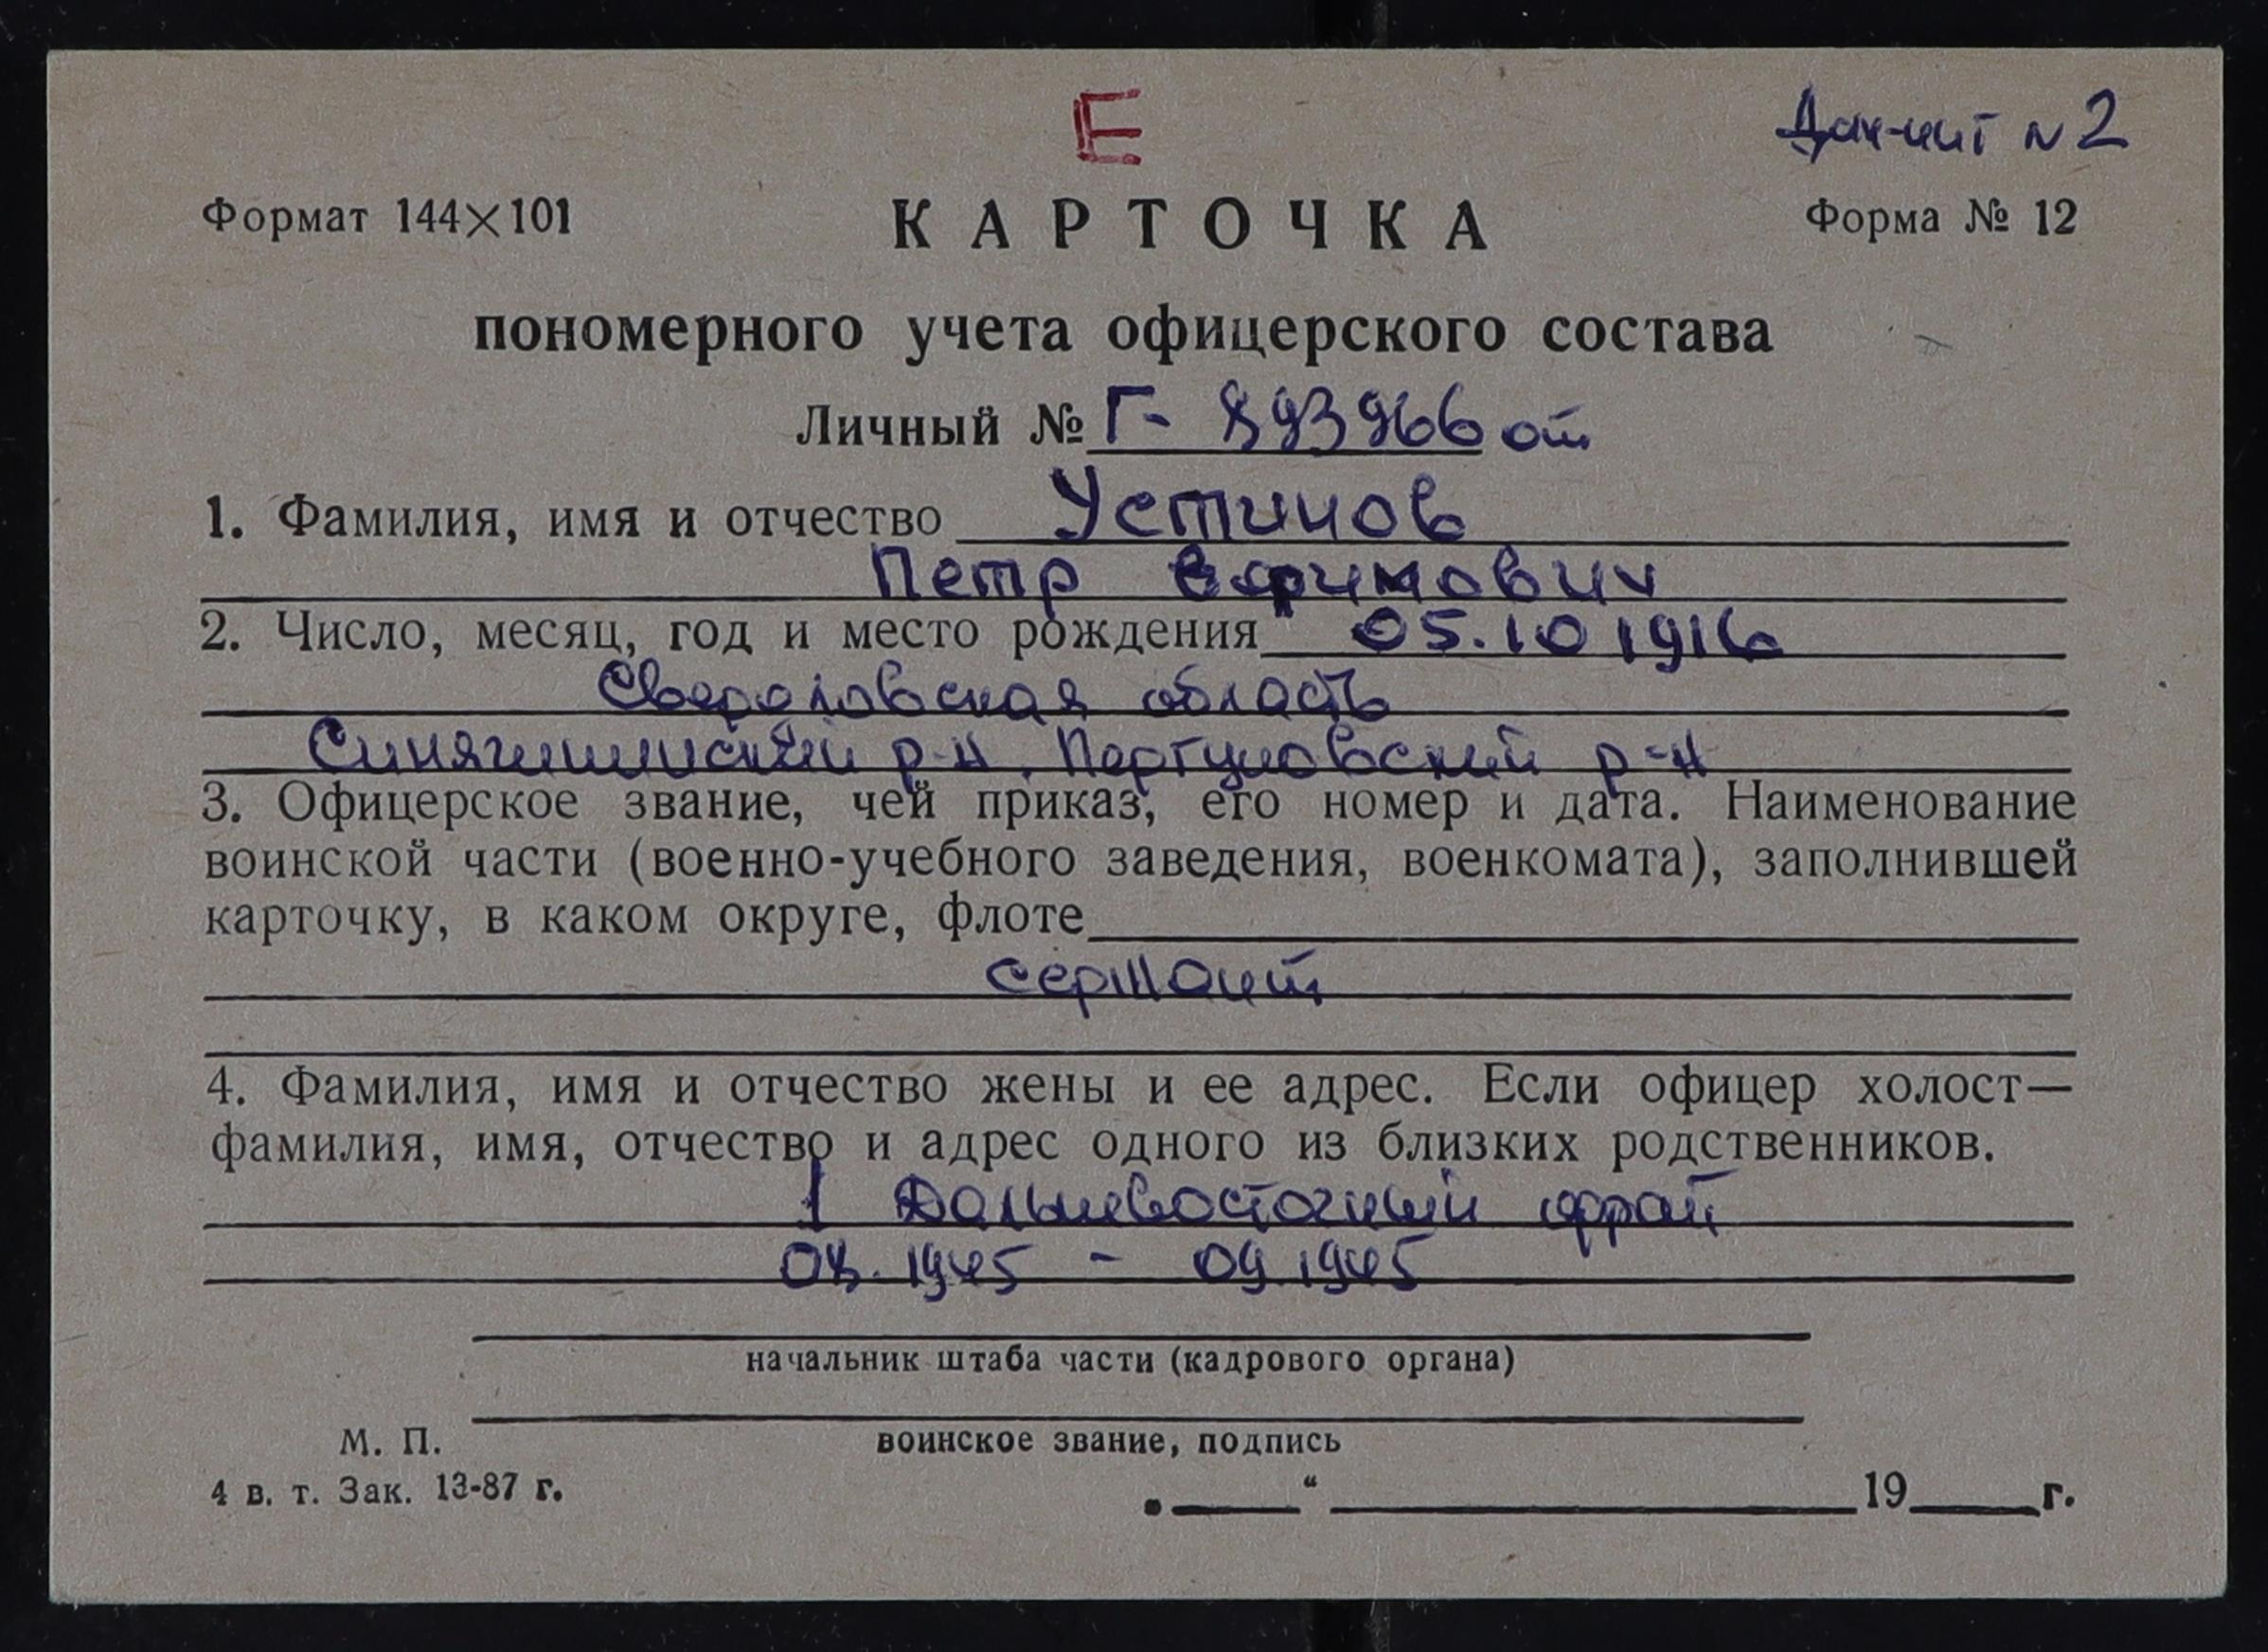 Е
Док-нит N 2
Формат 144×101
КАРТОЧКА
Форма № 12
пономерного учета офицерского состава
Личный № Г- 893966 от
1. Фамилия, имя и отчество Устинов
Петр Ефимович
2. Число, месяц, год и место рождения 05.10 1916
Свердловская область
р-н, р-н
3. Офицерское звание, чей приказ, его номер и дата. Наименование
воинской части (военно-учебного заведения, военкомата), заполнившей
карточку, в каком округе, флоте
сержант
4. Фамилия, имя и отчество жены и ее адрес. Если офицер холост—
фамилия, имя, отчество и адрес одного из близких родственников.
1 Дальневосточный фронт
08.1945 - 09.1945
начальник штаба части (кадрового органа)
М. П.
воинское звание, подпись
4 в. т. Зак. 13-87 г.
„ “ 19 г.